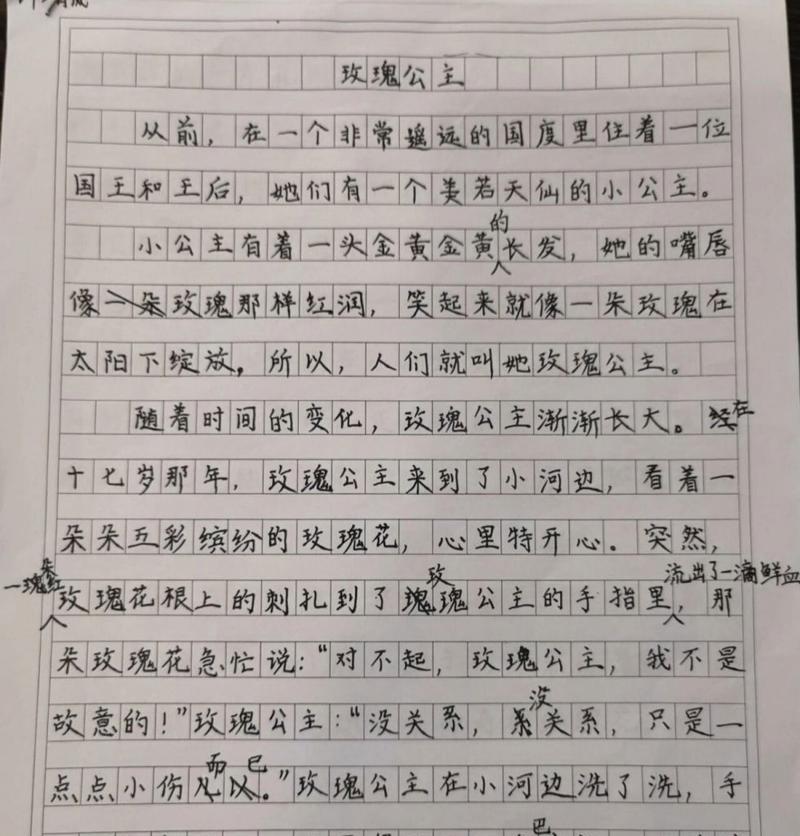 玫瑰公主
从前，在一个非常遥远的国度里住着一位
国王和王后，她们有一个美若天仙的小公主。
小公主有着一头金黄金黄的长发，她的嘴唇
像玫瑰那样红润，笑起来就像一朵玫瑰在
太阳下绽放。所以，人们就叫她玫瑰公主。
随着时间的变化，玫瑰公主渐渐长大。在
十七岁那年，玫瑰公主来到了小河边，看着一
朵朵五彩缤纷的玫瑰花，心里特开心。突然，
一朵红玫瑰花根上的刺扎到了玫瑰公主的手指里流出了一滴鲜血，那
朵玫瑰花急忙说：“对不起，玫瑰公主，我不是
故意的！”玫瑰公主：“没关系，没关系，只是一
点点小伤而已。”玫瑰公主在小河边洗了洗，手
巴